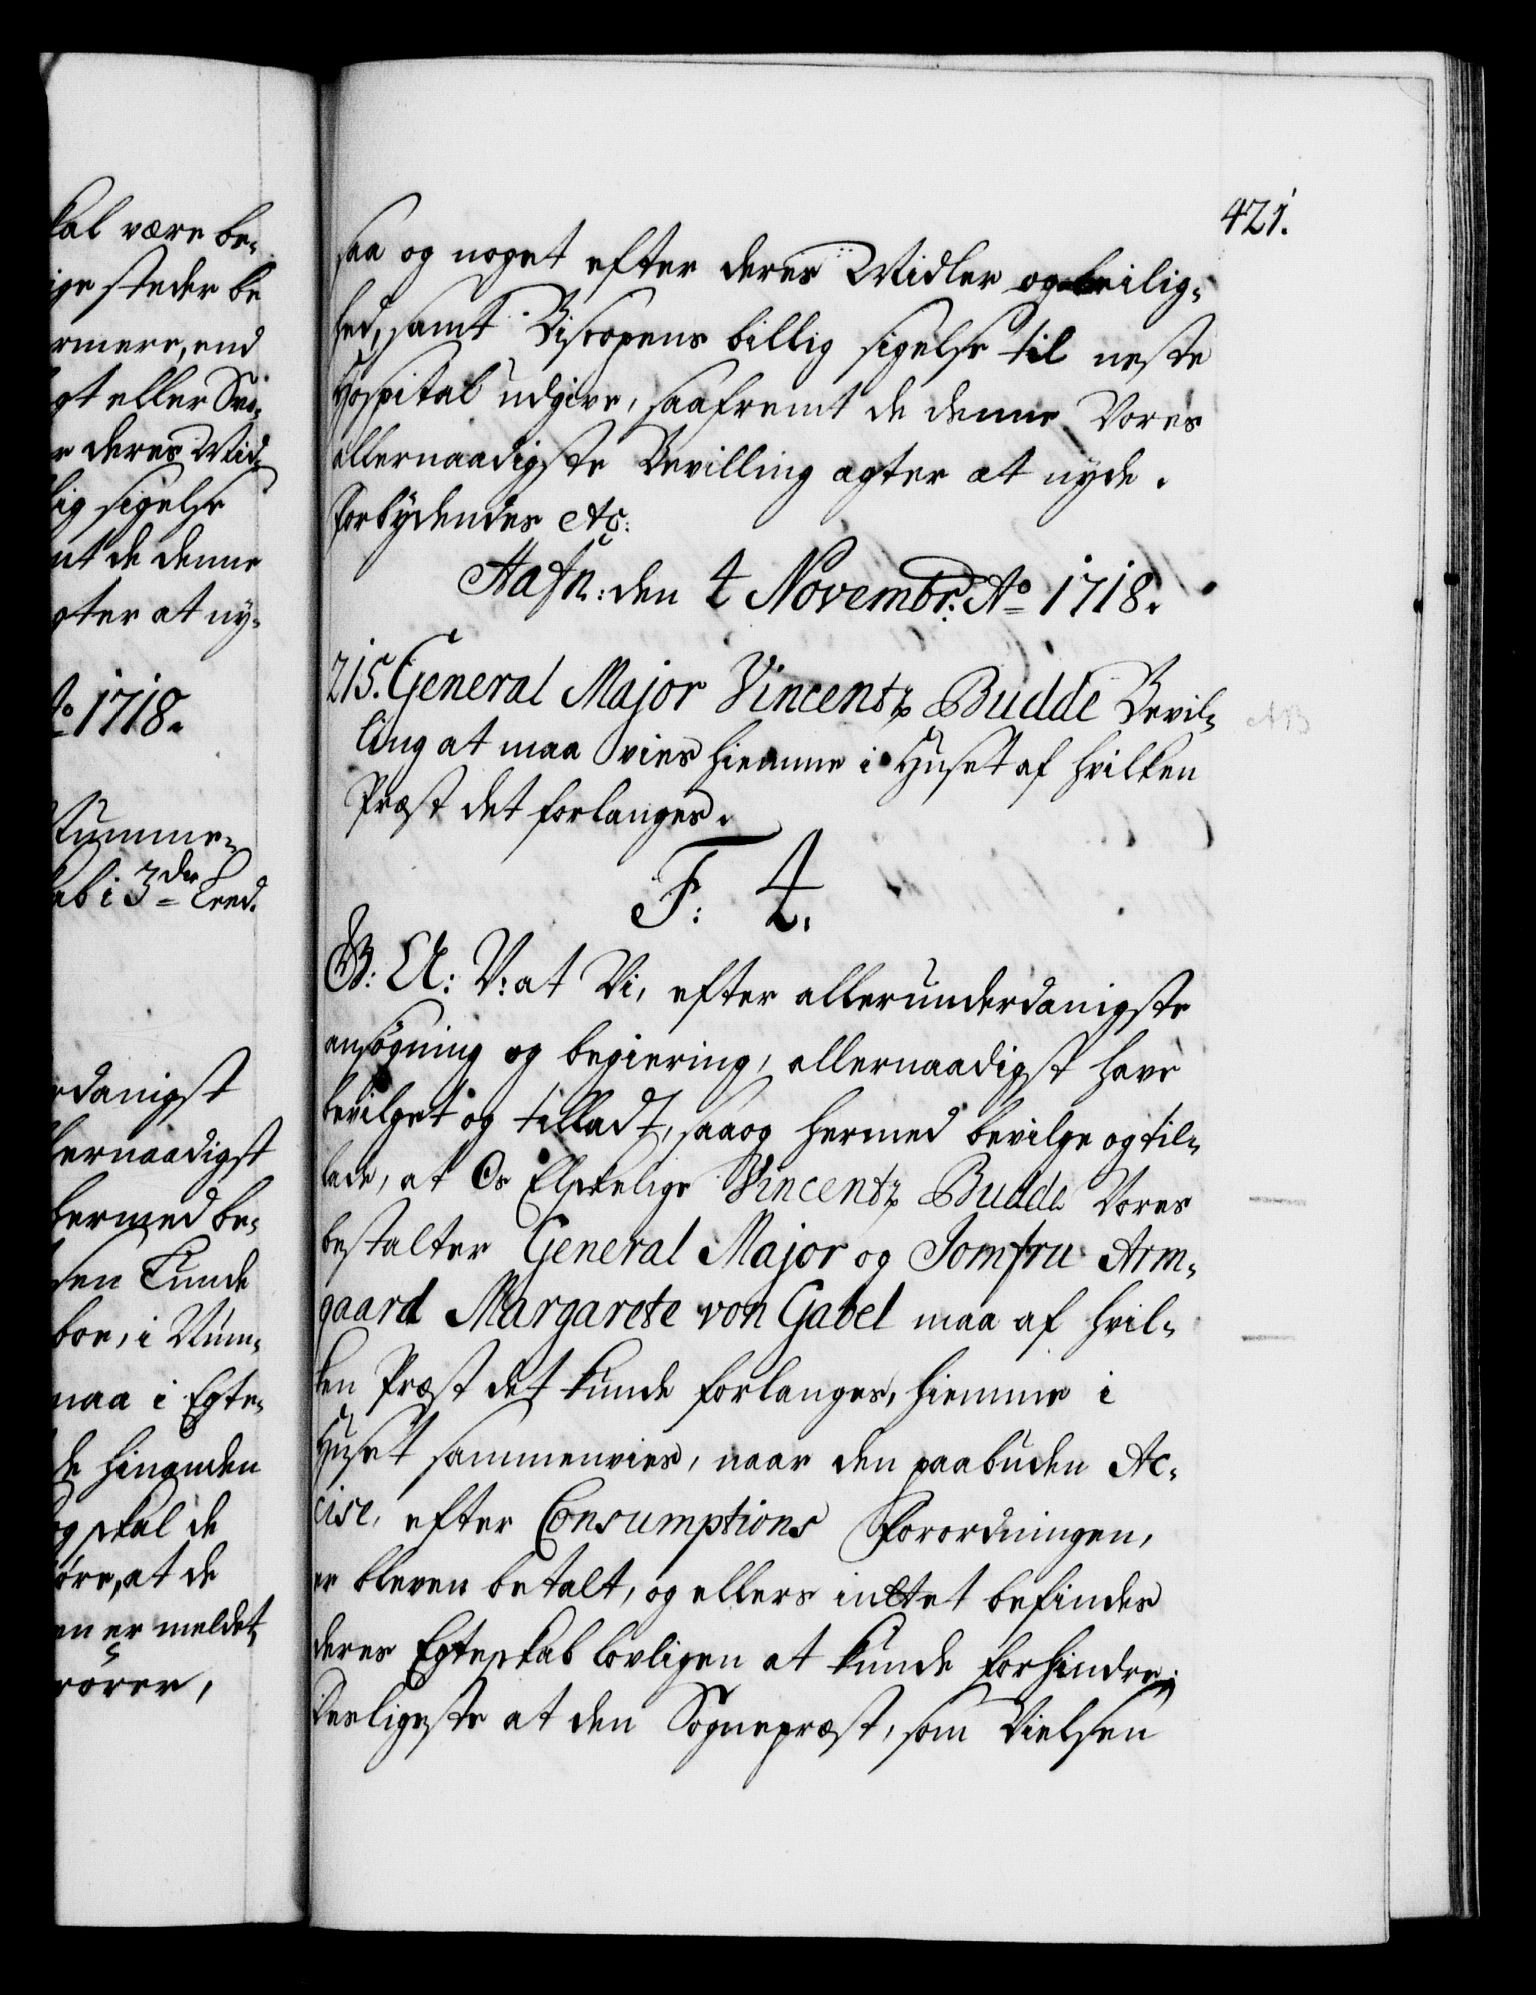 kal være be-
ige steder be
ermere, end
gt eller Svi-
r deres Mid-
lig sigelse
mt de denne
gter at ny-
Ao 1718.
Kumme-
kab i 3die Leed.
rdanigst
lernaadigst
hermed be-
sen Lunde
boe, i Num-
maa i Egte-
de hinanden
og skal de
øre, at de
en er meldet,
rører,
421.
saa og noget efter deres Midler og leilig-
hed, samt Biscopens billig sigelse til neste
Hospital udgive, saafremt de denne Vores
allernaadigste Bevilling agter at nyde.
Forbydendes etc:
Hafn: den 4 Novembr: Ao 1718.
215. General Major Vincentz Budde Bevil-
ling at maa vies hiemme i Huset af hvilken
Præst det forlanges.
F: 4.
G: A: V: at Vi, efter allerunderdanigste
ansøgning og begiering, allernaadigst have
bevilget og tilladt, saa og hermed bevilge og til-
lade, at Os Elskelige Vincentz Budde Vores
bestalter General Major og Jomfru Arm-
gaard Margarete von Gabel maa af hvil-
ken Præst det kunde forlanges, hiemme i
Huset sammenvies, naar den paabuden Ac-
cise, efter Consumptions Forordningen,
er bleven betalt, og ellers inttet befindes
deres Egteskab lovligen at kunde forhindre;
Desligeste at den Sognepræst, som Vielsen